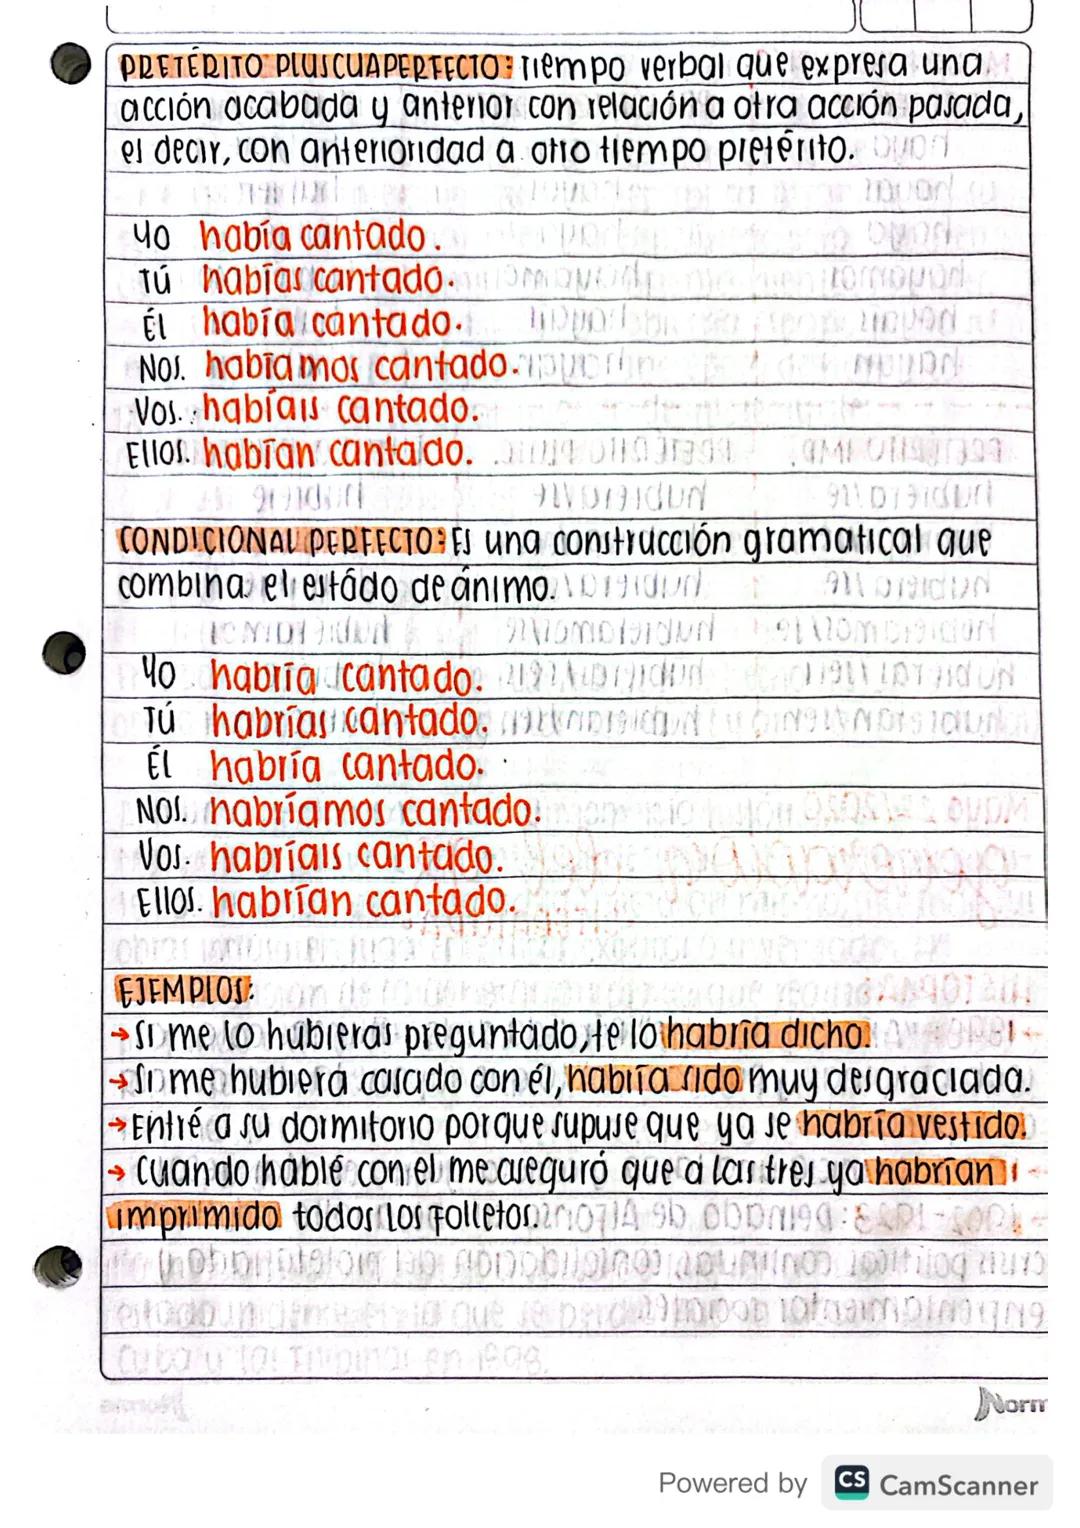 PRETÉRITO PLUSCUAPERFECTO: tiempo verbal que expresa una
acción acabada y anterior con relación a otra acción pasada,
es decir, con anterioridad a otro tiempo pretérito.
Yo había cantado.
Tú habías cantado.
Él había cantado.
Nos. habíamos cantado.
Vos. habíais cantado.
Ellos. habían cantado.
CONDICIONAL PERFECTO: Es una construcción gramatical que
combina el estado de ánimo.
Yo habría cantado.
Tú habrías cantado.
Él habría cantado.
Nos. habríamos cantado.
Vos. habríais cantado.
Ellos. habrían cantado.
EJEMPLOS:
→ Si me lo hubieras preguntado, te lo habría dicho.
→ Si me hubiera casado con él, habría sido muy desgraciada.
→ Entré a su dormitorio porque supuse que ya se habría vestido.
→ Cuando hablé con el me aseguró que a las tres ya habrían
imprimido todos los folletos.
Norm
Powered by CS CamScanner